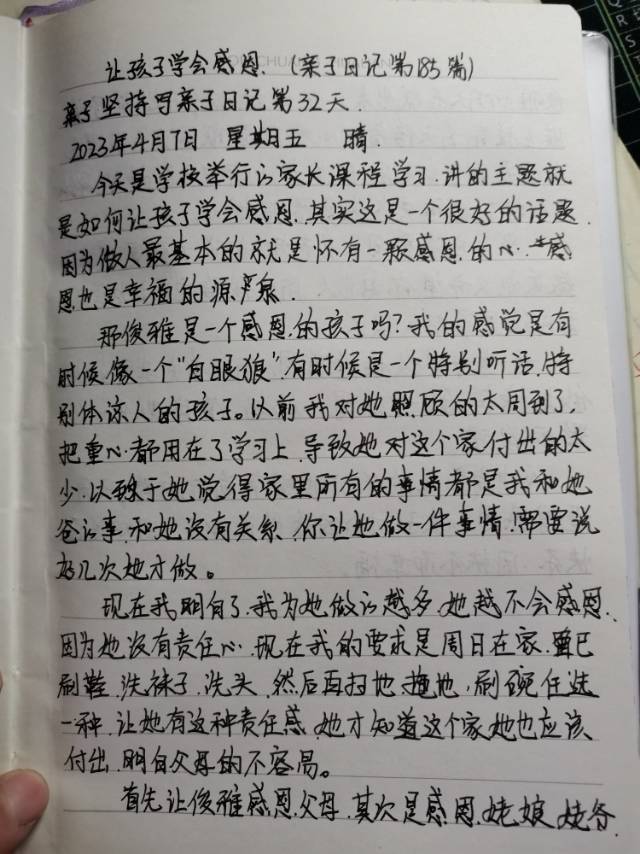 让孩子学会感恩.(亲子日记第185篇)
亲子坚持写亲子日记第32天.
2023年4月7日 星期五 晴.
今天是学校举行的家长课程学习.讲的主题就
是如何让孩子学会感恩.其实这是一个很好的话题.
因为做人最基本的就是怀有一颗感恩的心.感
恩也是幸福的源泉.
那俊雅是一个感恩的孩子吗?我的感觉是有
时候像一个“白眼狼”.有时候是一个特别听话,特
别体谅人的孩子。以前我对她照顾的太周到了,
把重心都用在了学习上,导致她对这个家付出的太
少.以致于她觉得家里所有的事情都是我和她
爸的事,和她没有关系.你让她做一件事情.需要说
好几次她才做。
现在我明白了,我为她做的越多,她越不会感恩.
因为她没有责任心.现在我的要求是周日在家.自己
刷鞋,洗袜子,洗头,然后再扫地,拖地,刷碗任选
一种,让她有这种责任感,她才知道这个家她也应该
付出,明白父母的不容易。
首先让俊雅感恩父母,其次是感恩,姥娘,姥爷